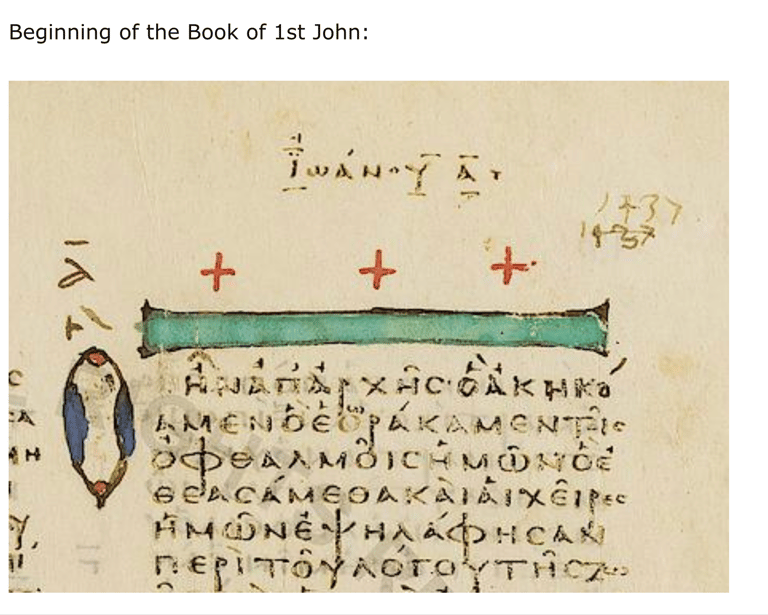 Beginning of the Book of 1st John:
ἸωάνουΑ
1437
1437
Ο ΗΝἈΠἈΡΧΗΣὉἈΚΗΚό
ΑΜΕΝὉἙΟΡΆΚΑΜΕΝΤΟΙΣ
ὈΦΘΑΛΜΟΙΣἩΜΩΝὉἘ
ΘΕΑΣΆΜΕΘΑΚΑῚΑἹΧΕΙΡΕΣ
ἩΜΩΝἘΨΗΛΆΦΗΣΑΝ
ΠΕΡῚΤΟΥΛΌΓΟΥΤΗΣΖω